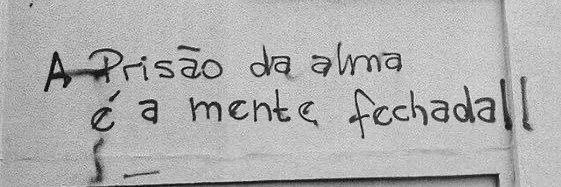 A Prisão da alma
é a mente fechada!!